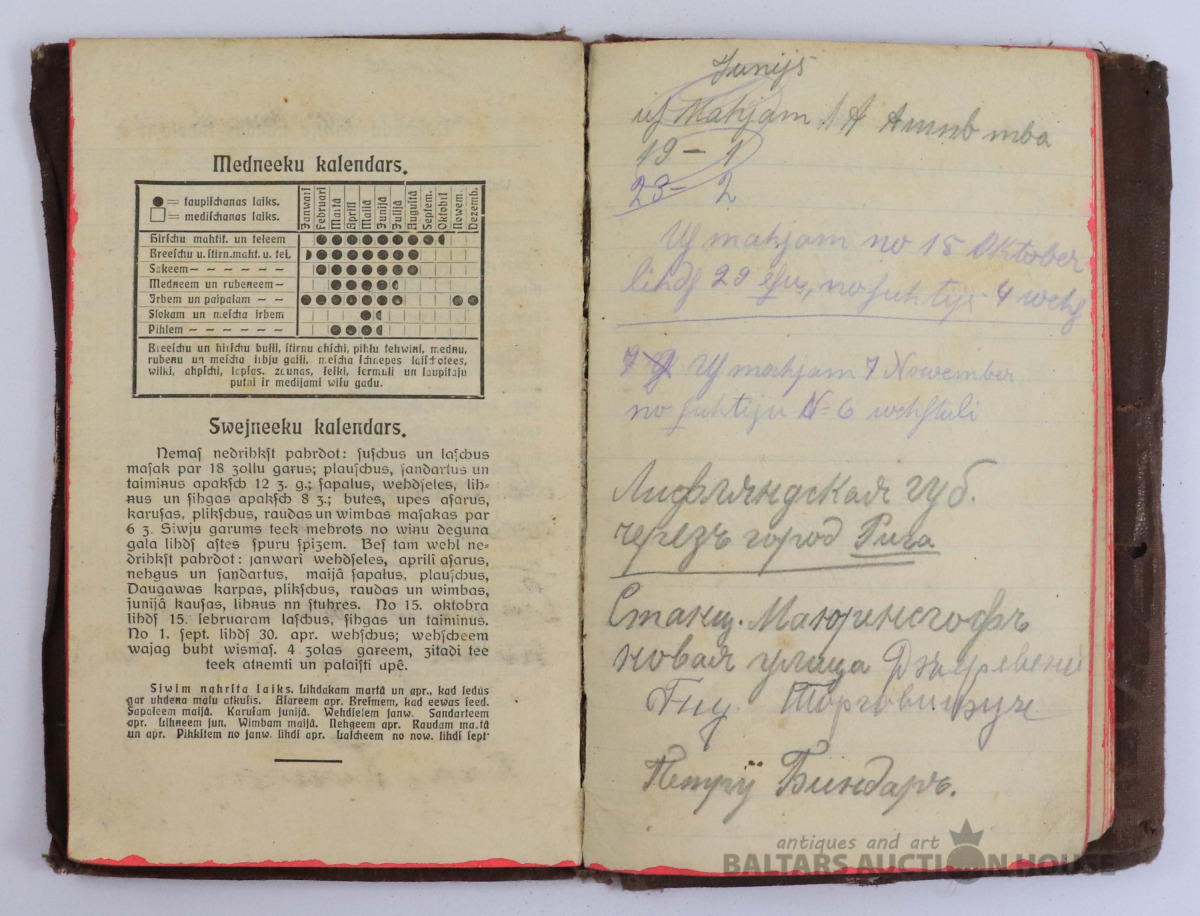 Medneeku kalendars.
● = taupiſchanas laiks.
□ = mediſchanas laiks.
Janwarī
Februarī
Martā
Aprilī
Maijā
Junijā
Julijā
Auguſtā
Septem.
Oktobrī
Nowem.
Dezemb.
Hirſchu mahtit. un teleem
Breeſchu u. ſtirn. maht. u. tel.
Sakeem
Medneem un rubeneem
Irbem un paipalam
Slokam un meſcha irbem
Pihlem
Breeſchu un hirſchu buļļi, ſtirnu ahſchi, pihļu tehwiņi, mednu,
rubeņu un meſcha irbju gaiļi, meſcha ſchnepes
wilki, ahpſchi, lapſas, zaunas, ſeſki, ſermuļi un laupitaju
putni ir medijami wiſu gadu.
Swejneeku kalendars.
Nemaſ nedrihkſt pahrdot: ſuſchus un laſchus
maſak par 18 zollu garus; plauſchus, ſandartus un
taimiņus apakſch 12 z. g.; ſapalus, wehdſeles, lih-
nus un ſihgas apakſch 8 z.; butes, upes aſarus,
karuſas, plikſchus, raudas un wimbas maſakas par
6 z. Siwju garums teek mehrots no wiņu deguna
gala lihdſ aſtes ſpuru ſpizem. Beſ tam wehl ne-
drihkſt pahrdot: janwarī wehdſeles, aprilī aſarus,
nehgus un ſandartus, maijâ ſapalus, plauſchus,
Daugawas karpas, plikſchus, raudas un wimbas,
junijâ kauſas, lihnus nn ſtuhres. No 15. oktobra
lihdſ 15. februaram laſchus, ſihgas un taimiņus.
No 1. ſept. lihdſ 30. apr. wehſchus; wehſcheem
wajag buht wismaſ. 4 zolas gareem, zitadi tee
teek atņemti un palaiſti upê.
Siwim nahrſta laiks. Lihdakam martā un apr., kad ledus
gar uhdeņa malu atkuſis. Aſareem apr. Breſmem, kad eewas ſeed.
Sapaleem maijâ. Karuſam junijâ. Wehdſelem janw. Sandarteem
apr. Lihneem jun. Wimbam maijâ. Nehgeem apr. Raudam martā
un apr. Pihkſtem no janw. lihdſ apr. Laſcheem no now. lihdſ ſept.
Junijs
uſ Mahjam
19 – 1
23 – 2
Uſ mahjam no 15 Oktober
lihdſ 29 , no ſuhtiju 4 wehſ
7 Uſ mahjam 7 Nowember
no ſuhtiju № 6 wehſtuli
Лифляндская губ.
черезъ город Рига
Станц. Маюренсгофъ
новая улица
Петрӱ Биндаръ.
antiques and art
BALTARS AUCTION HOUSE